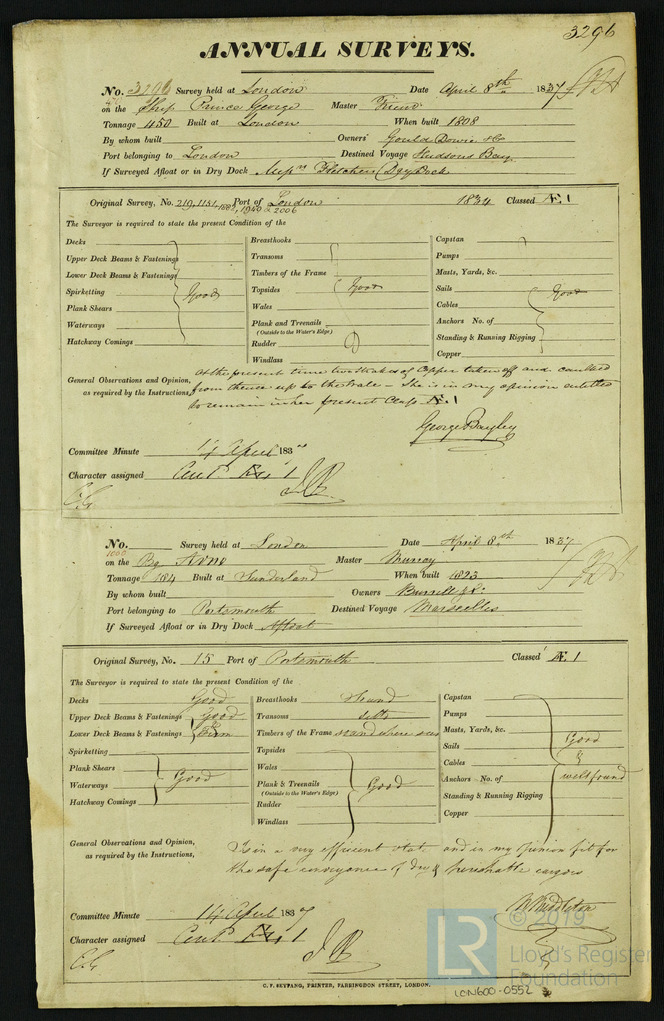 3296
ANNUAL SURVEYS.
No. 3296 Survey held at London Date April 8th 1837
on the Ship Prince George Master
Tonnage 450 Built at London When built 1808
By whom built Owners Gould Dowie & Co
Port belonging to London Destined Voyage Hudsons Bay
If Surveyed Afloat or in Dry Dock Messrs Fletchers Dry Dock
Original Survey, No. 219, 1151, 1940 & 2006 Port of London 1834 Classed Æ 1
The Surveyor is required to state the present Condition of the
Decks
Upper Deck Beams & Fastenings
Lower Deck Beams & Fastenings
Spirketting Good
Plank Shears
Waterways
Hatchway Comings
Breasthooks
Transoms
Timbers of the Frame
Topsides Good
Wales
Plank and Treenails
(Outside to the Water's Edge)
Rudder
Windlass
Capstan
Pumps
Masts, Yards, &c.
Sails Good
Cables
Anchors No. of
Standing & Running Rigging
Copper
General Observations and Opinion,
as required by the Instructions,
At the present time two strakes of Copper taken off and caulked
from thence up to the Wales - She is in my opinion entitled
to remain in her present Class Æ 1
George Bayley
Committee Minute 14 April 183
Character assigned Cont. Æ 1
No. Survey held at London Date April 8th 1837
1000
on the Bg Arno Master Murray
Tonnage 184 Built at Sunderland When built 1823
By whom built Owners Burrell & Co
Port belonging to Portsmouth Destined Voyage Marseilles
If Surveyed Afloat or in Dry Dock Afloat
Original Survey, No. 15 Port of Portsmouth Classed Æ 1
The Surveyor is required to state the present Condition of the
Decks Good
Upper Deck Beams & Fastenings Good
Lower Deck Beams & Fastenings Firm
Spirketting
Plank Shears
Waterways Good
Hatchway Comings
Breasthooks Sound
Transoms
Timbers of the Frame sound where seen
Topsides
Wales
Plank & Treenails Good
(Outside to the Water's Edge)
Rudder
Windlass
Capstan
Pumps
Masts, Yards, &c.
Sails Good
Cables &
Anchors No. of well found
Standing & Running Rigging
Copper
General Observations and Opinion,
as required by the Instructions,
Is in a very efficient state and in my opinion fit for
the safe conveyance of dry & perishable cargoes
W Middleton
Committee Minute 14 April 1837
Character assigned Cont. Æ 1
C. F. SEYFANG, PRINTER, FARRINGDON STREET, LONDON.
LON600-0552
LR
© 2019
Lloyd's Register
Foundation